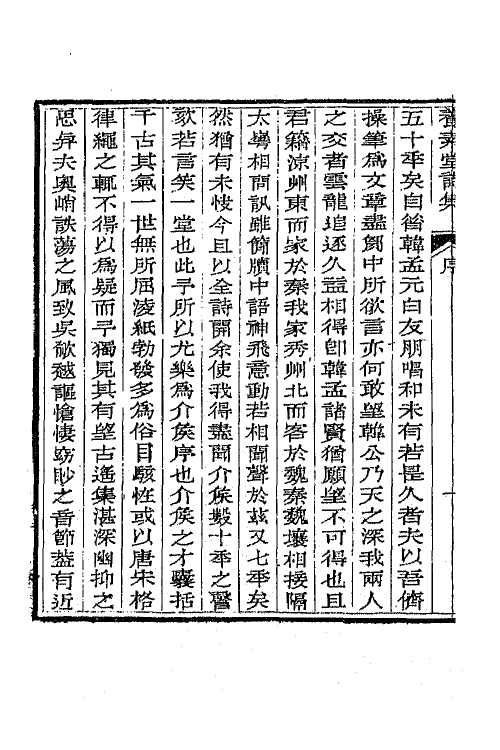 養素堂詩集 序 一
五十年矣自昔韓孟元白友朋唱和未有若是久者夫以吾儕
操筆為文章盡匈中所欲言亦何敢望韓公乃天之深我兩人
之交者雲龍追逐久益相得卽韓孟諸賢猶願望不可得也且
君籍涼州東而家於秦我家秀州北而客於魏秦魏壤相接隔
太華相問訊雖簡牘中語神飛意動若相聞聲於茲又七年矣
然猶有未快今且以全詩開余使我得盡聞介侯數十年之謦
欬若言笑一堂也此予所以尤樂為介侯序也介侯之才囊括
千古其氣一世無所屈凌紙勃發多為俗目駭怪或以唐宋格
律繩之輒不得以為疑而予獨見其有望古遙集湛深幽抑之
思與夫奧峭詄蕩之風致吳歈越謳愴悽窈眇之音節蓋有近